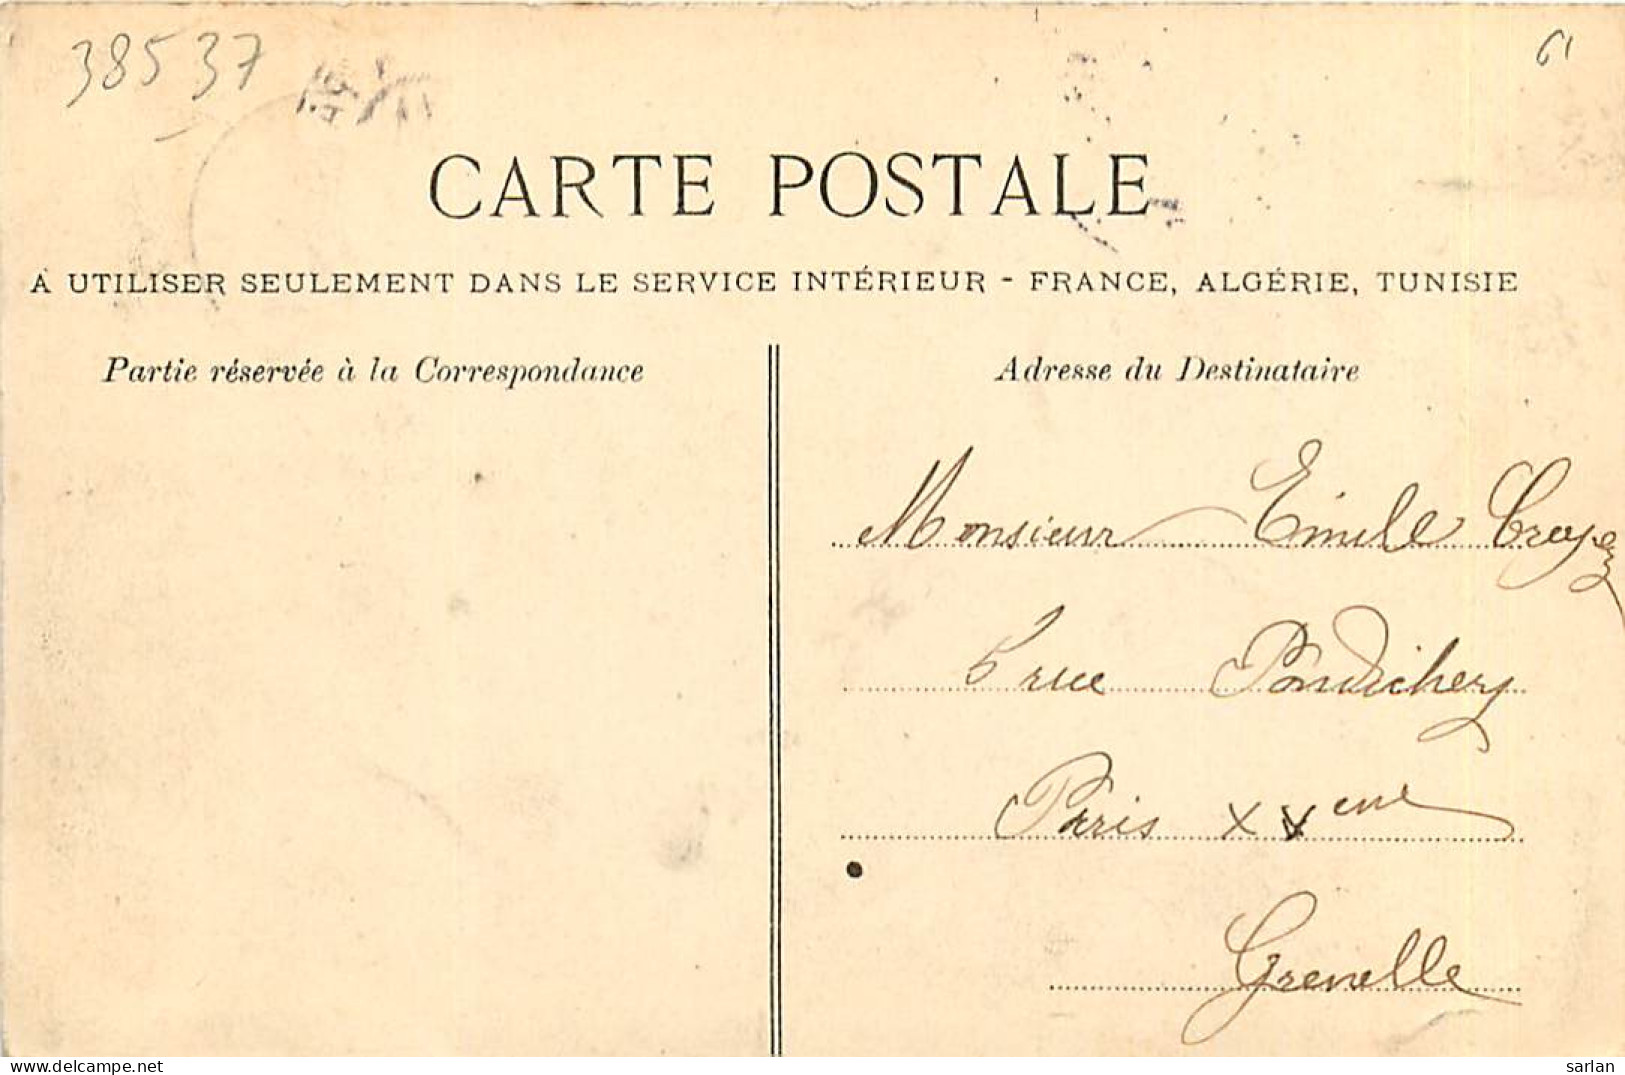 38537
61
CARTE POSTALE
A UTILISER SEULEMENT DANS LE SERVICE INTÉRIEUR - FRANCE, ALGÉRIE, TUNISIE
Partie réservée à la Correspondance
Adresse du Destinataire
Monsieur Emile
rue Pondichery
Paris XVeme
Grenelle
https://www.delcampe.net
sarlan